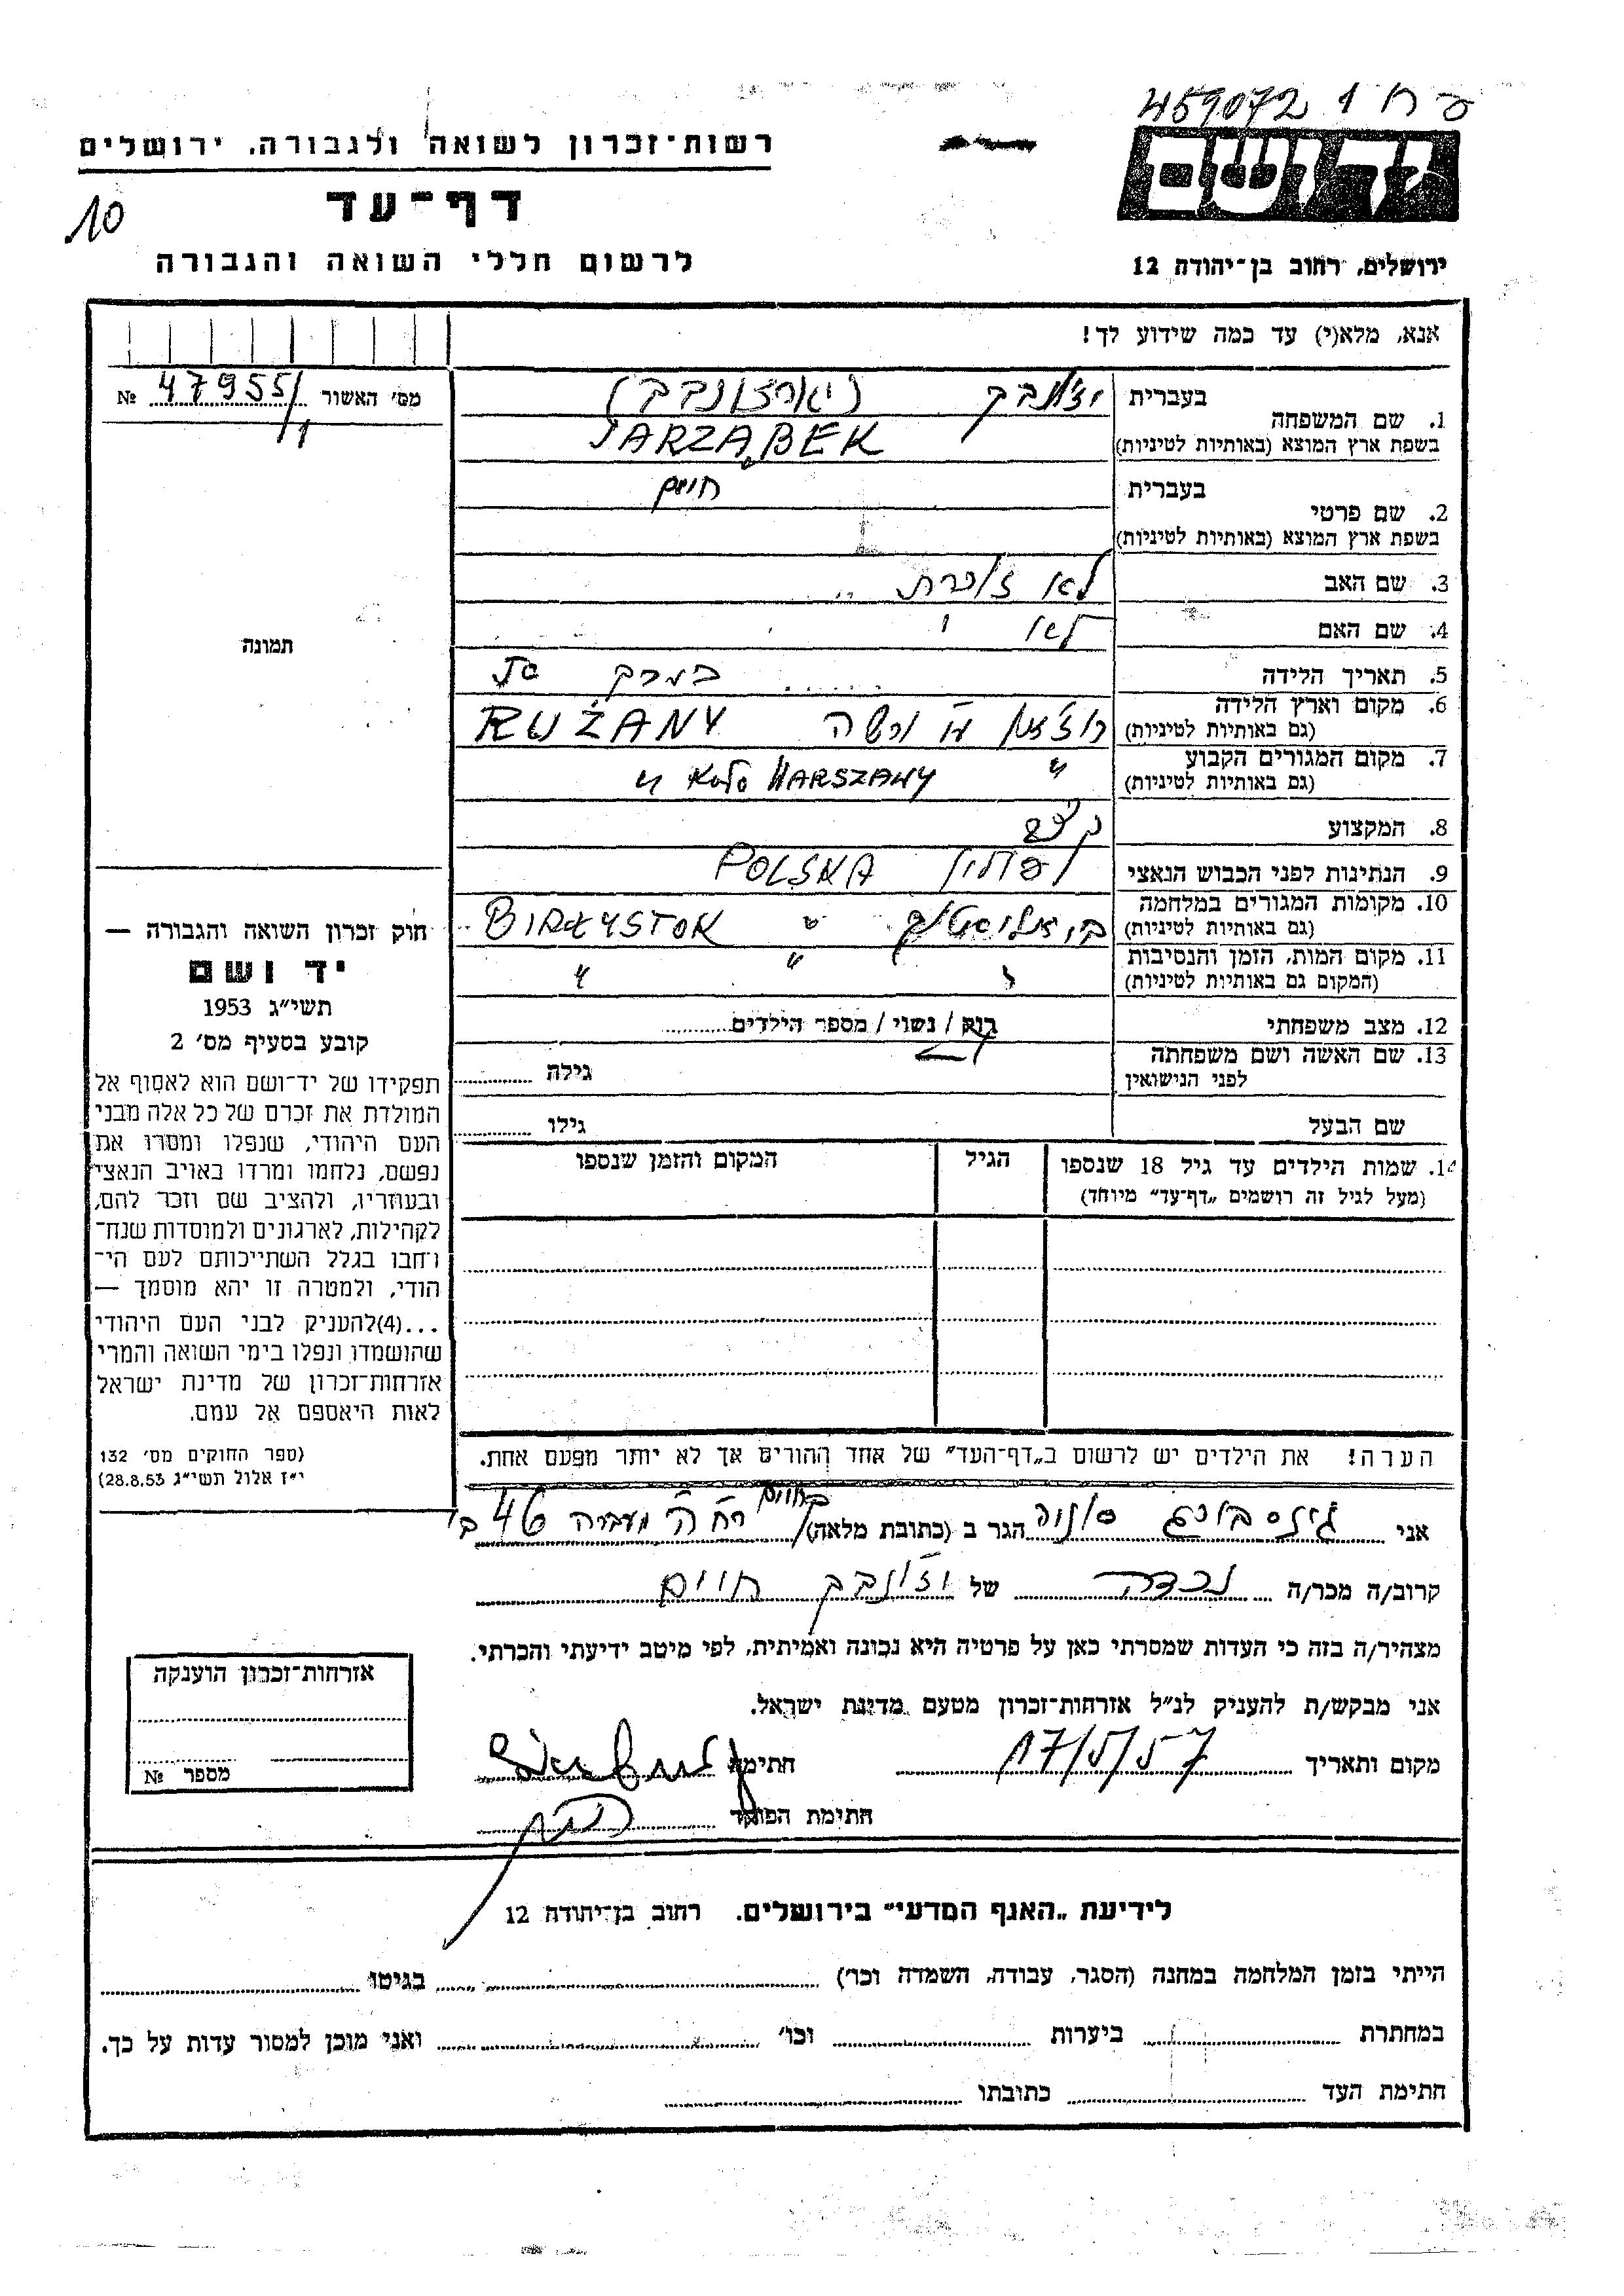 459072 1
רשות-זכרון לשואה ולגבורה, ירושלים
ידושם
10
דף-עד
לרשום חללי השואה והגבורה
ירושלים, רחוב בן-יהודה 12
אנא, מלא(י) עד כמה שידוע לך!
מס' האשור № 47955/1
1. שם המשפחה
בעברית
בשפת ארץ המוצא (באותיות לטיניות) JARZĄBEK
2. שם פרטי
בעברית חיים
בשפת ארץ המוצא (באותיות לטיניות)
3. שם האב לא זוכרת
4. שם האם לא "
5. תאריך הלידה
6. מקום וארץ הלידה
(גם באותיות לטיניות) ורשה RUŻANY
7. מקום המגורים הקבוע
(גם באותיות לטיניות) " KOŁO WARSZAWY "
8. המקצוע קצב
9. הנתינות לפני הכבוש הנאצי פולין POLSKA
10. מקומות המגורים במלחמה
(גם באותיות לטיניות) ביאליסטוק " BIAŁYSTOK
11. מקום המות, הזמן והנסיבות
(המקום גם באותיות לטיניות) " " "
12. מצב משפחתי רוק / נשוי / מספר הילדים
13. שם האשה ושם משפחתה
לפני הנישואין
גילה
שם הבעל גילו
14. שמות הילדים עד גיל 18 שנספו הגיל המקום והזמן שנספו
(מעל לגיל זה רושמים „דף-עד" מיוחד)
הערה! את הילדים יש לרשום ב„דף-העד" של אחד ההורים אך לא יותר מפעם אחת.
תמונה
חוק זכרון השואה והגבורה —
יד ושם
תשי"ג 1953
קובע בסעיף מס' 2
תפקידו של יד-ושם הוא לאסוף אל
המולדת את זכרם של כל אלה מבני
העם היהודי, שנפלו ומסרו את
נפשם, נלחמו ומרדו באויב הנאצי
ובעוזריו, ולהציב שם וזכר להם,
לקהילות, לארגונים ולמוסדות שנח-
רחבו בגלל השתייכותם לעם הי-
הודי, ולמטרה זו יהא מוסמך —
...(4)להעניק לבני העם היהודי
שהושמדו ונפלו בימי השואה והמרי
אזרחות-זכרון של מדינת ישראל
לאות היאספם אל עמם.
(ספר החוקים מס' 132
י"ז אלול תשי"ג 28.8.53)
אני הגר ב (כתובת מלאה) מעברה 46
קרוב/ה מכר/ה נכדה של חיים
מצהיר/ה בזה כי העדות שמסרתי כאן על פרטיה היא נכונה ואמיתית, לפי מיטב ידיעתי והכרתי.
אני מבקש/ת להעניק לנ"ל אזרחות-זכרון מטעם מדינת ישראל.
מקום ותאריך 17/5/57 חתימה
חתימת הפוקד
אזרחות-זכרון הוענקה
מספר №
לידיעת „האגף המדעי" בירושלים, רחוב בן-יהודה 12
הייתי בזמן המלחמה במחנה (הסגר, עבודה, השמדה וכו') בגיטו
במחתרת ביערות וכו' ואני מוכן למסור עדות על כך.
חתימת העד כתובתו